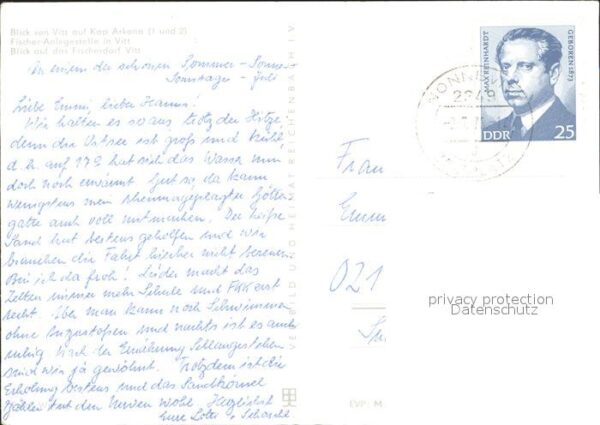 Blick von Vitt auf Kap Arkona (1 und 2)
Fischer-Anlegestelle in Vitt
Blick auf das Fischerdorf Vitt
An einem der schönen Sommer-Sonnen-
Sonntage - Juli
Liebe Emmi, lieber Hanns!
Wir halten es so aus trotz der Hitze,
denn die Ostsee ist groß und kühl
d.h. auf 17° hat sich das Wasser nun
doch noch erwärmt. Gut so, da kann
wenigstens mein rheumageplagter Götter-
gatte auch voll mitmachen. Der heiße
Sand hat bestens geholfen und wir
brauchen die Fahrt hierher nicht bereuen.
Bin ich da froh! Leider macht das
Zelten immer mehr Schule und FKK erst
recht. Aber man kann noch Schwimmen
ohne Anzustoßen und nachts ist es auch
ruhig. Nach der Ernährung Schlangestehen
sind wir ja gewöhnt. Trotzdem ist die
Erholung bestens und das Sandkörner
Zählen tut den Nerven wohl. Herzlichst
Eure Lotte
VEB BILD UND HEIMAT REICHENBACH I. V.
EVP M
MAX REINHARDT
GEBOREN 1873
DDR
25
2349
Frau
Emm
021
privacy protection
Datenschutz